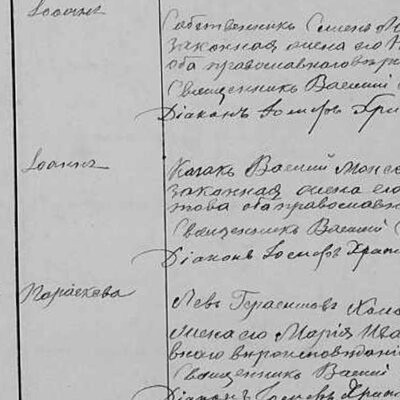 Іоаннъ
Собственникъ Семенъ
законная жена его
оба православнаго
Священникъ Василій
Діаконъ Іосифъ Хри
Іоаннъ
Казакъ Василій Моисе
законная жена его
това оба православн
Священникъ Василій
Діаконъ Іосифъ Храп
Параскева
Левъ Герасимовъ
жена его Марія Ива
внаго вѣроисповѣданія
Священникъ Василій
Діаконъ Іосифъ Храп